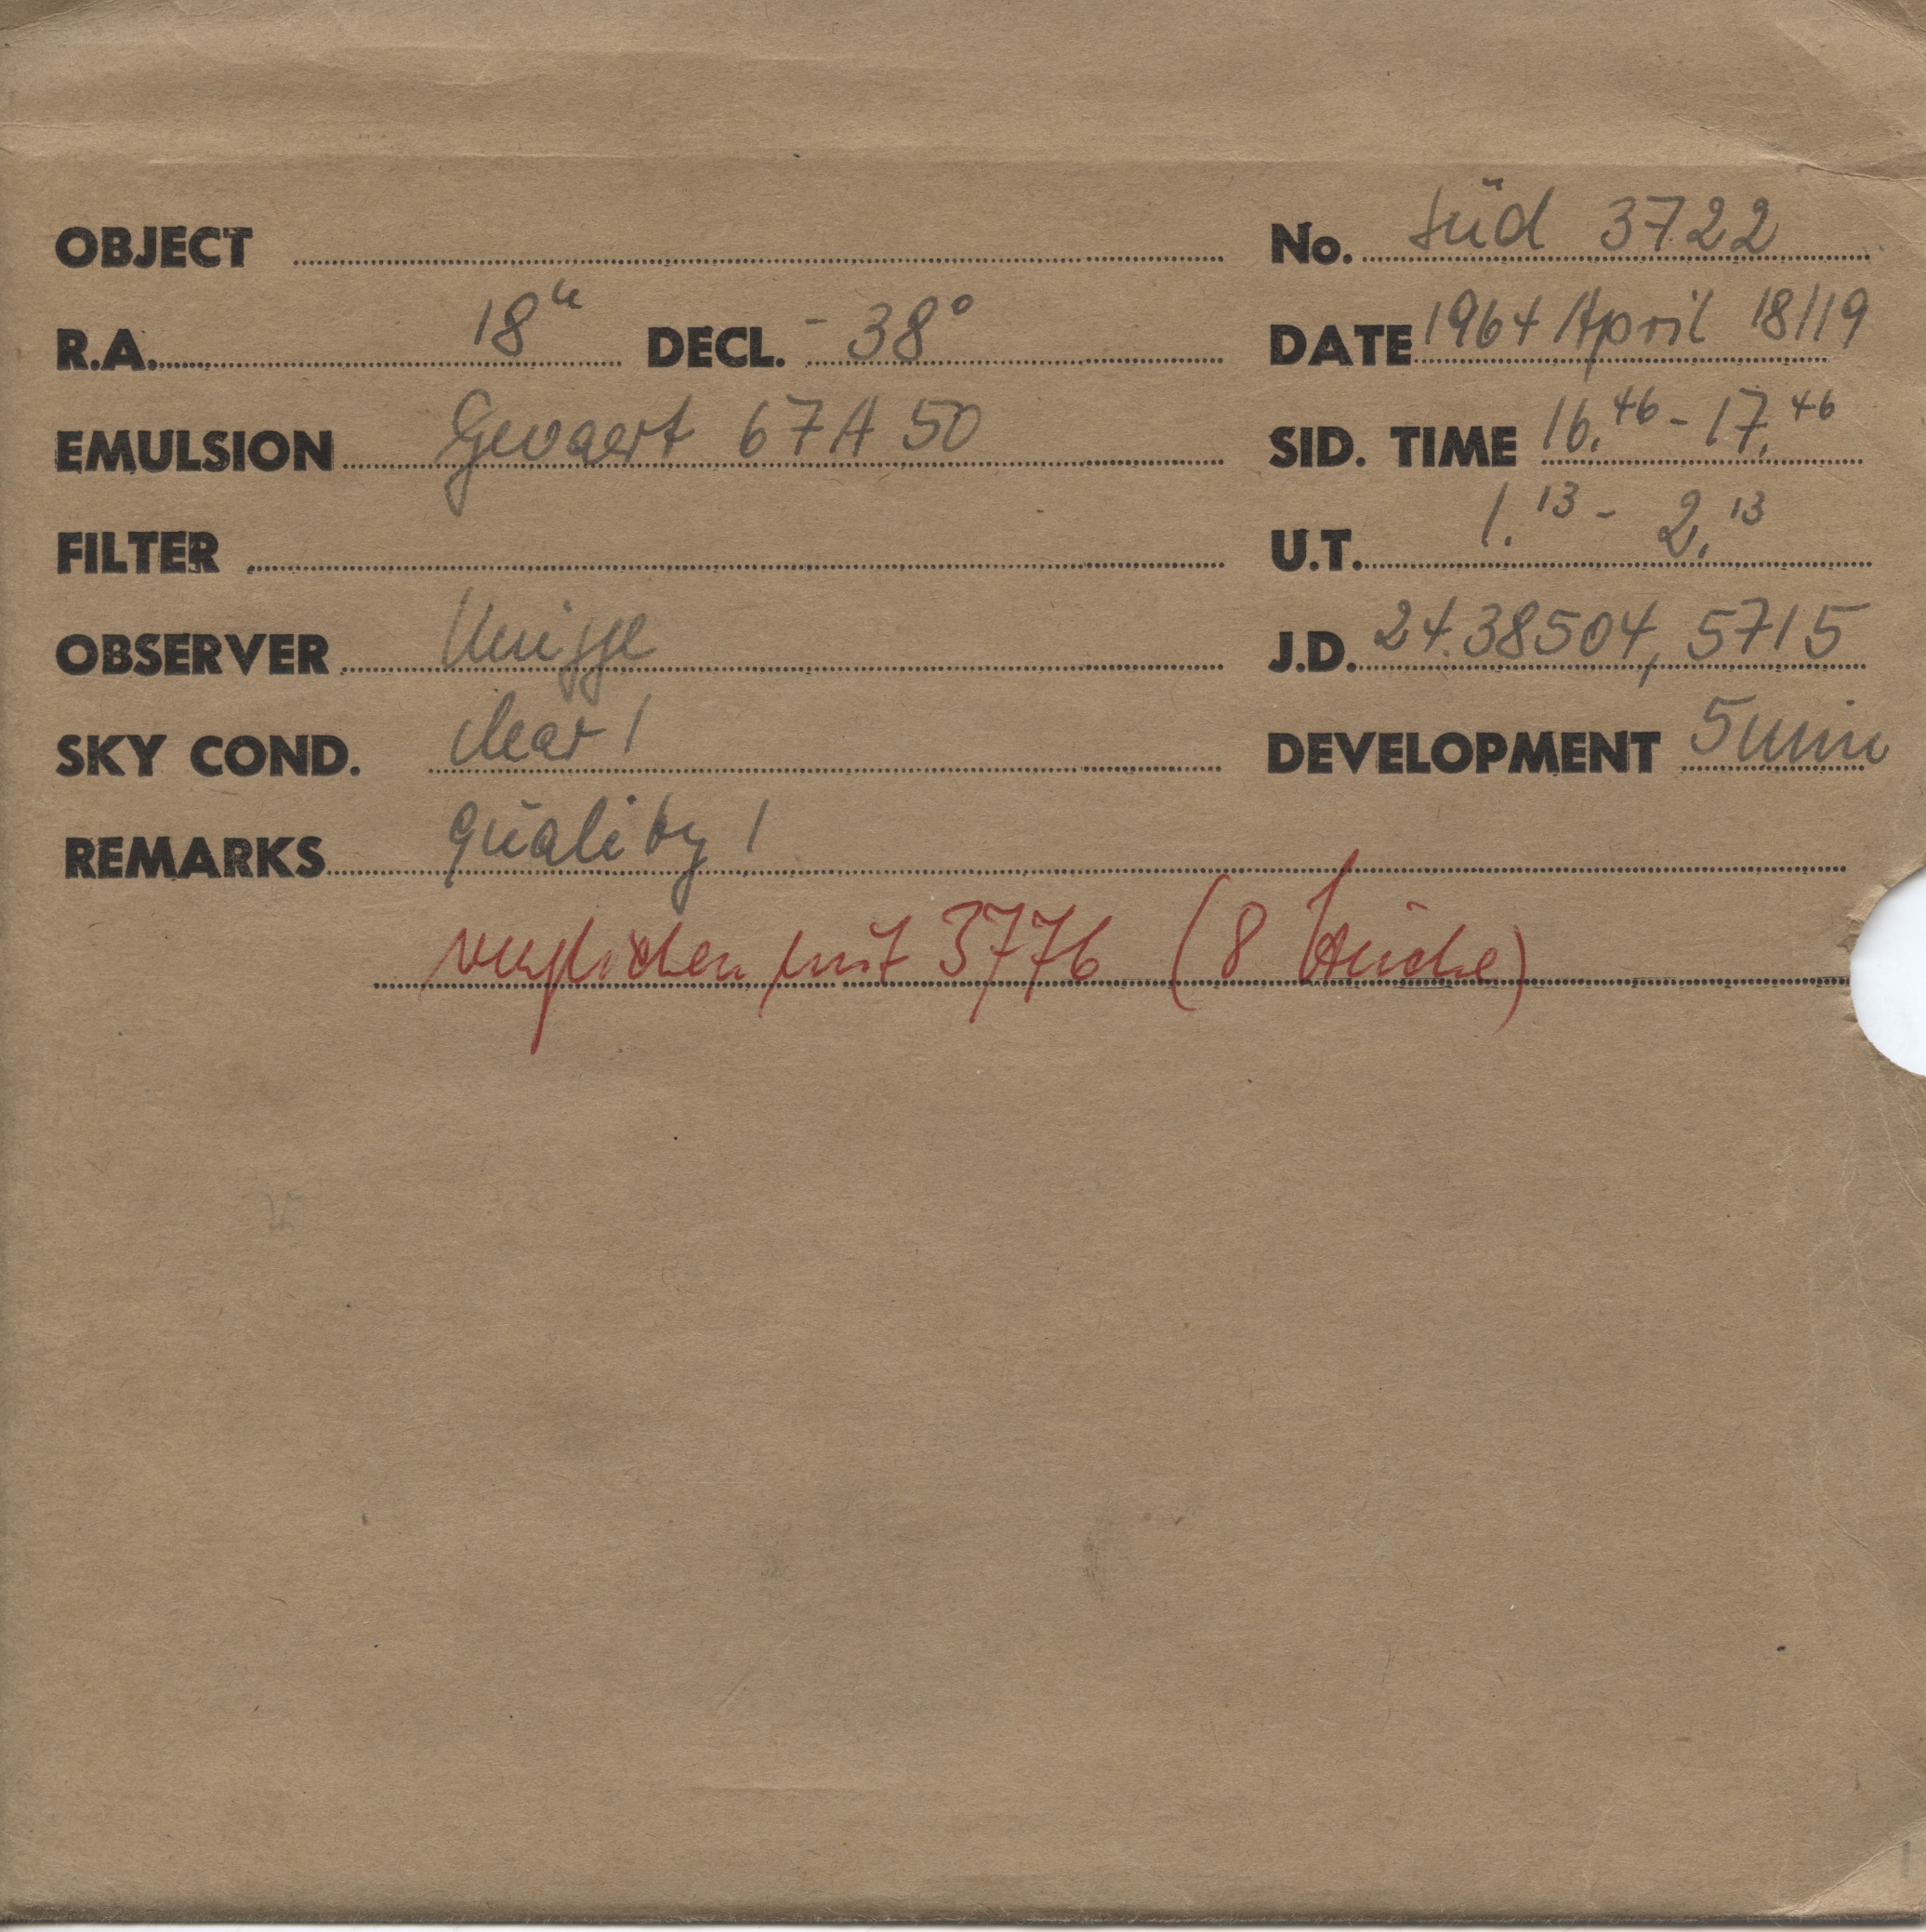 OBJECT No. Süd 3722
R.A. 18h DECL. -38° DATE 1964 April 18/19
EMULSION Gevaert 67A50 SID. TIME 16.46 - 17.46
FILTER U.T. 1.13 - 2.13
OBSERVER J.D. 24.38504,5715
SKY COND. clear 1 DEVELOPMENT 5 min
REMARKS quality 1
verglichen mit 3776 (8 )